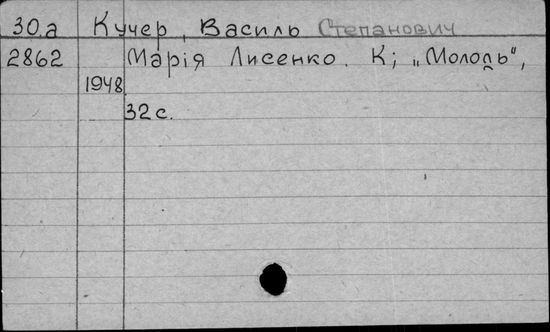 30.а Кучер, Василь Степанович
2862 Марія Лисенко. К; „Молодь",
1948
32 с.